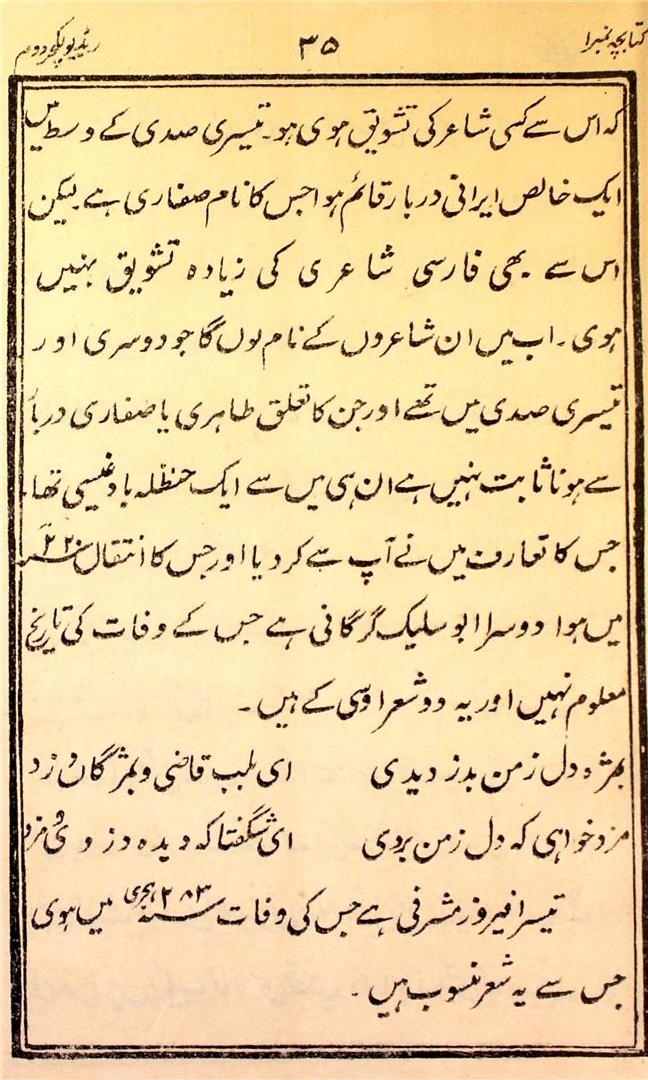 کتابچہ نمبرا ۳۵ ریڈیو لکچر دوم
کہ اس سے کسی شاعر کی تشویق ہوی ہو۔ تیسری صدی کے وسط میں
ایک خالص ایرانی دربار قائم ہوا جس کا نام صفاری ہے۔ لیکن
اس سے بھی فارسی شاعری کی زیادہ تشویق نہیں
ہوی۔ اب میں ان شاعروں کے نام لوں گا جو دوسری اور
تیسری صدی میں تھے اور جن کا تعلق طاہری یا صفاری دربار
سے ہونا ثابت نہیں ہے ان ہی میں سے ایک حنظلہ بادغیسی تھا۔
جس کا تعارف میں نے آپ سے کردیا اور جس کا انتقال سنہ ۲۲۰
میں ہوا دوسرا ابو سلیک گرگانی ہے جس کے وفات کی تاریخ
معلوم نہیں اور یہ دو شعر اوسی کے ہیں۔
بمژہ دل ز من بدزدیدی ای بلب قاضی و بمژگان دزد
مزد خواہی کہ دل ز من بردی ای شگفتا کہ دیدہ دزدی مزد
تیسرا فیروز مشرقی ہے جس کی وفات سنہ ۲۸۳ ہجری میں ہوی
جس سے یہ شعر منسوب ہیں۔